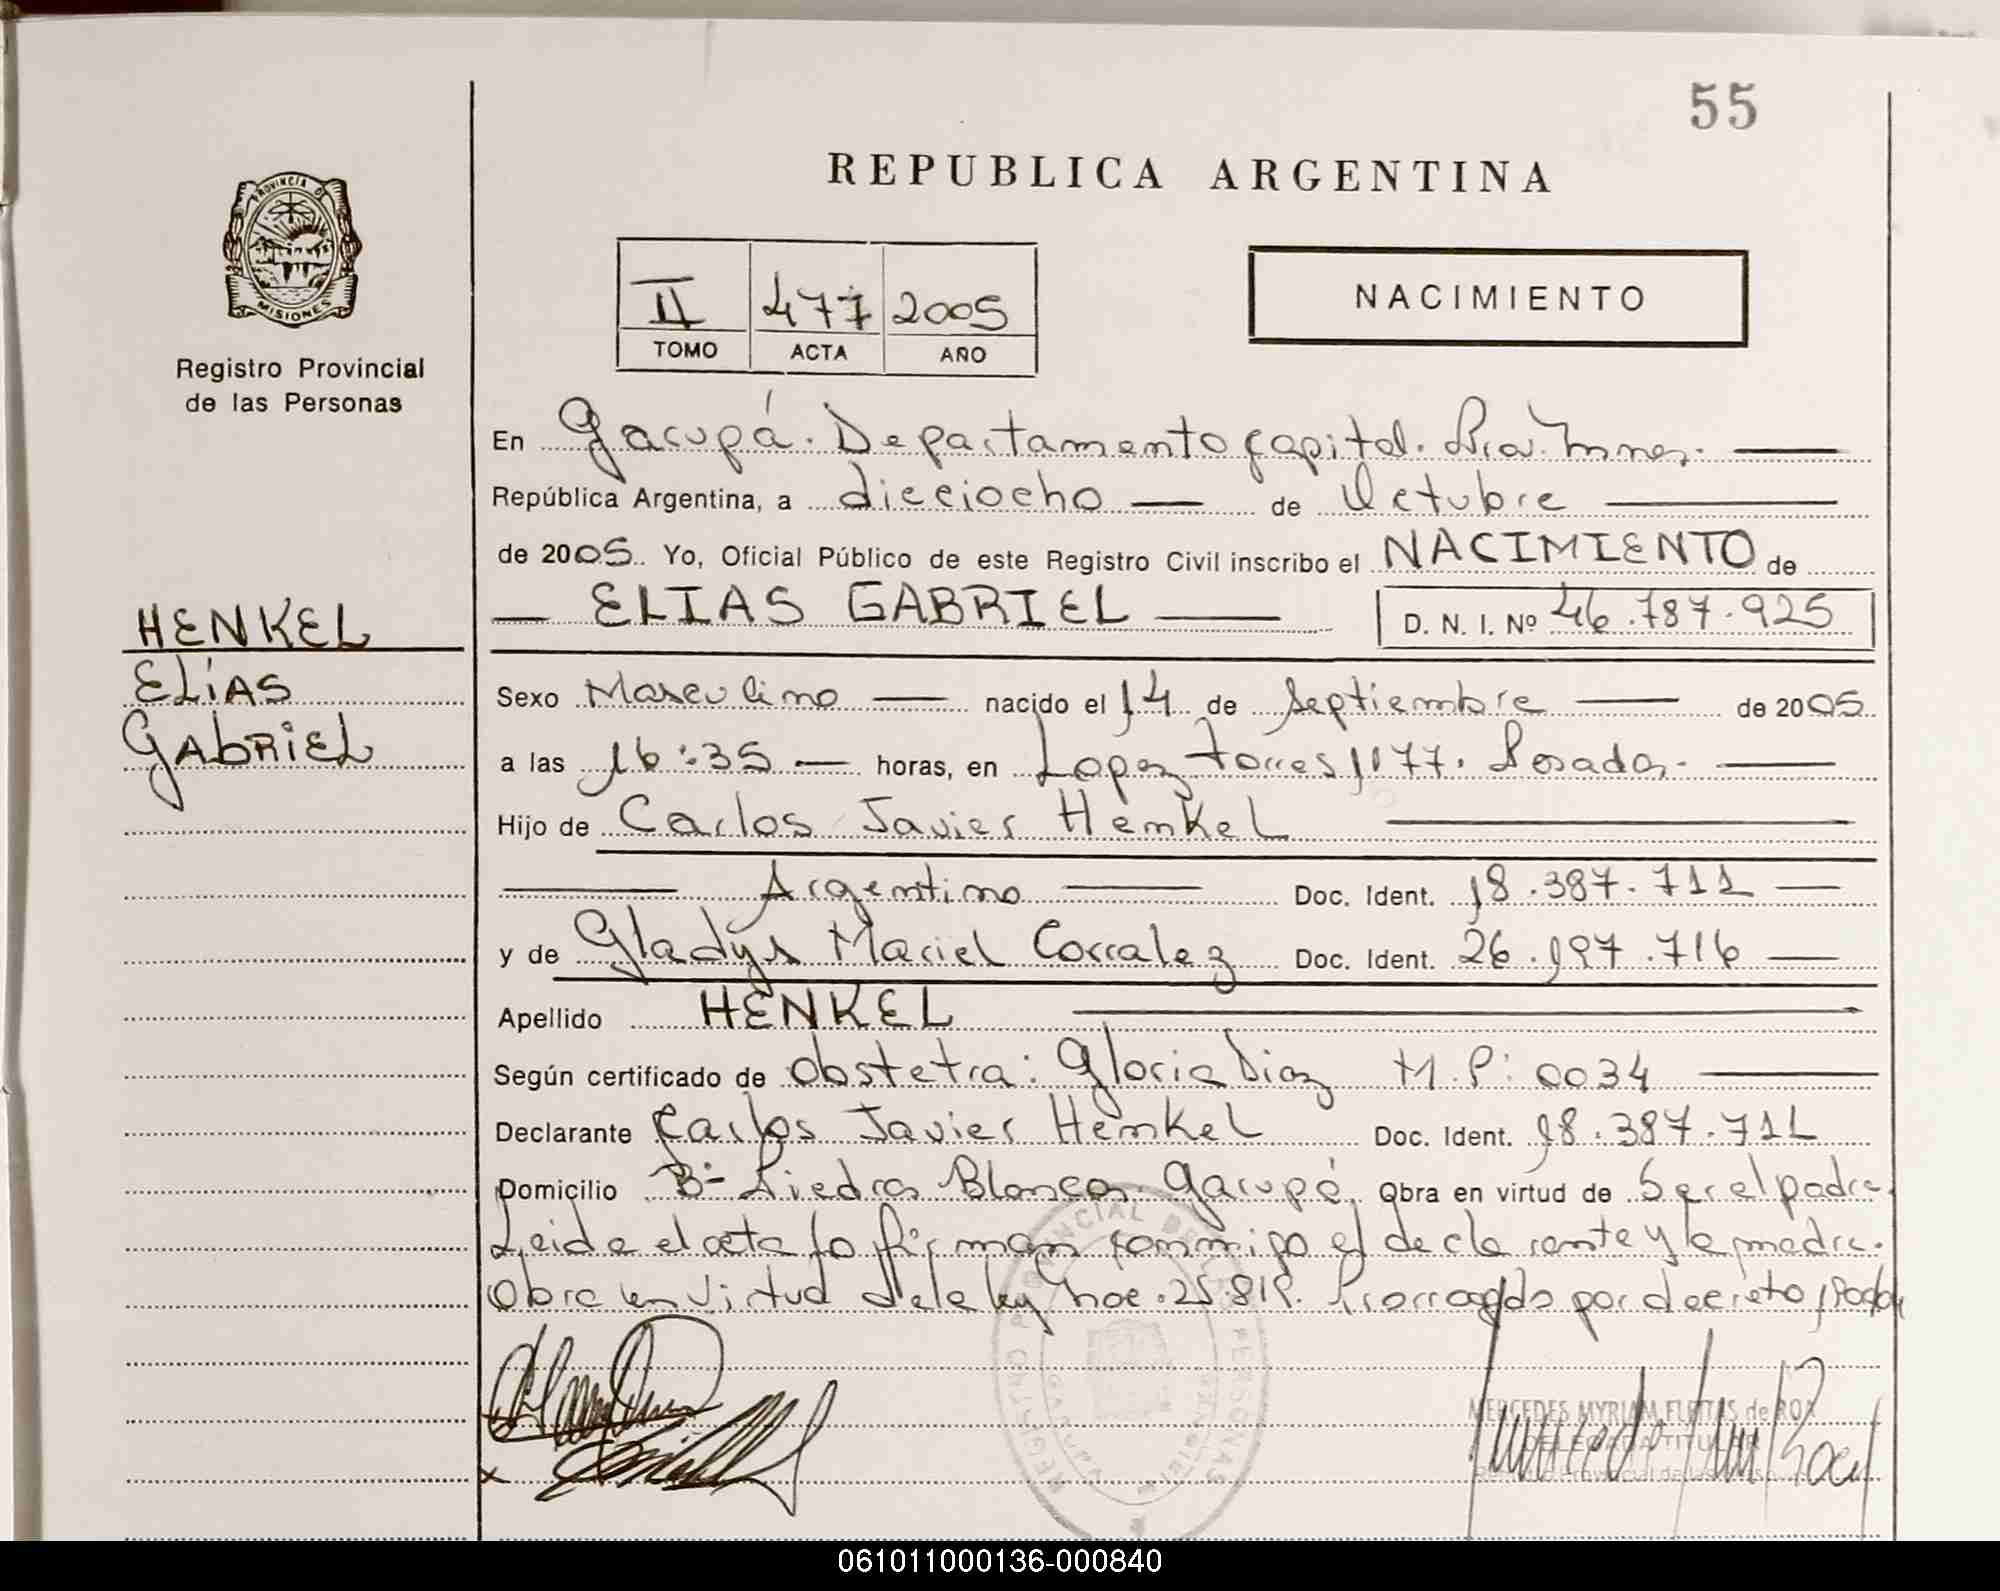 55
REPUBLICA ARGENTINA
PROVINCIA DE
MISIONES
Registro Provincial
de las Personas
II 477 2005
TOMO ACTA AÑO
NACIMIENTO
En Garupá. Departamento Capital. Pcia. Mnes.
República Argentina, a dieciocho de Octubre
de 2005. Yo, Oficial Público de este Registro Civil inscribo el NACIMIENTO de
ELIAS GABRIEL D. N. I. Nº 46.787.925
HENKEL
ELíAS
GABRIEL
Sexo Masculino nacido el 14 de Septiembre de 2005
a las 16:35 horas, en Lopez torres 1177. Posadas.
Hijo de Carlos Javier Henkel
Argentino Doc. Ident. 18.387.711
y de Gladys Mariel Corralez Doc. Ident. 26.197.716
Apellido HENKEL
Según certificado de Obstetra: Gloria Diaz M.P: 0034
Declarante Carlos Javier Henkel Doc. Ident. 18.387.711
Domicilio Bº Piedras Blancas. Garupá. Obra en virtud de Ser el padre.
Leida el acta la firman conmigo el declarante y la madre.
Obra en virtud de la ley Nac. 25.819. Prorrogada por decreto
REGISTRO PROVINCIAL DE LAS PERSONAS
MERCEDES MYRIAM FLEITAS de ROA
DELEGADA TITULAR
Registro Provincial de las Personas
061011000136-000840